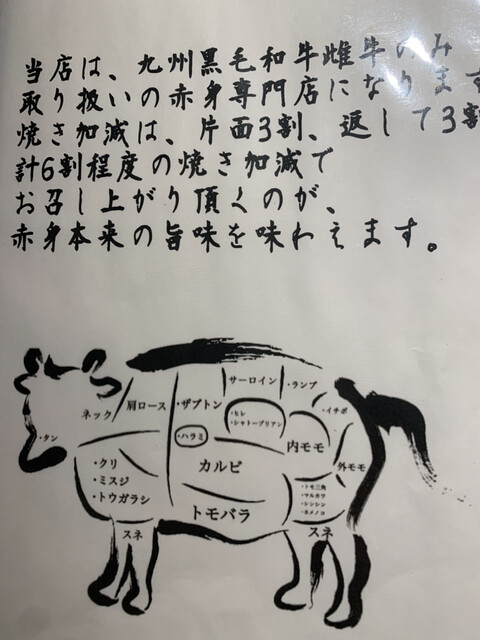 当店は、九州黒毛和牛雌牛のみ
取り扱いの赤身専門店になります
焼き加減は、片面3割、返して3割
計6割程度の焼き加減で
お召し上がり頂くのが、
赤身本来の旨味を味わえます。
サーロイン
・ランプ
ネック
肩ロース
・ザブトン
・ヒレ
・シャトーブリアン
・イチボ
・タン
・ハラミ
内モモ
・クリ
・ミスジ
・トウガラシ
カルビ
外モモ
・トモ三角
・マルカワ
・シンシン
・カメノコ
トモバラ
スネ
スネ